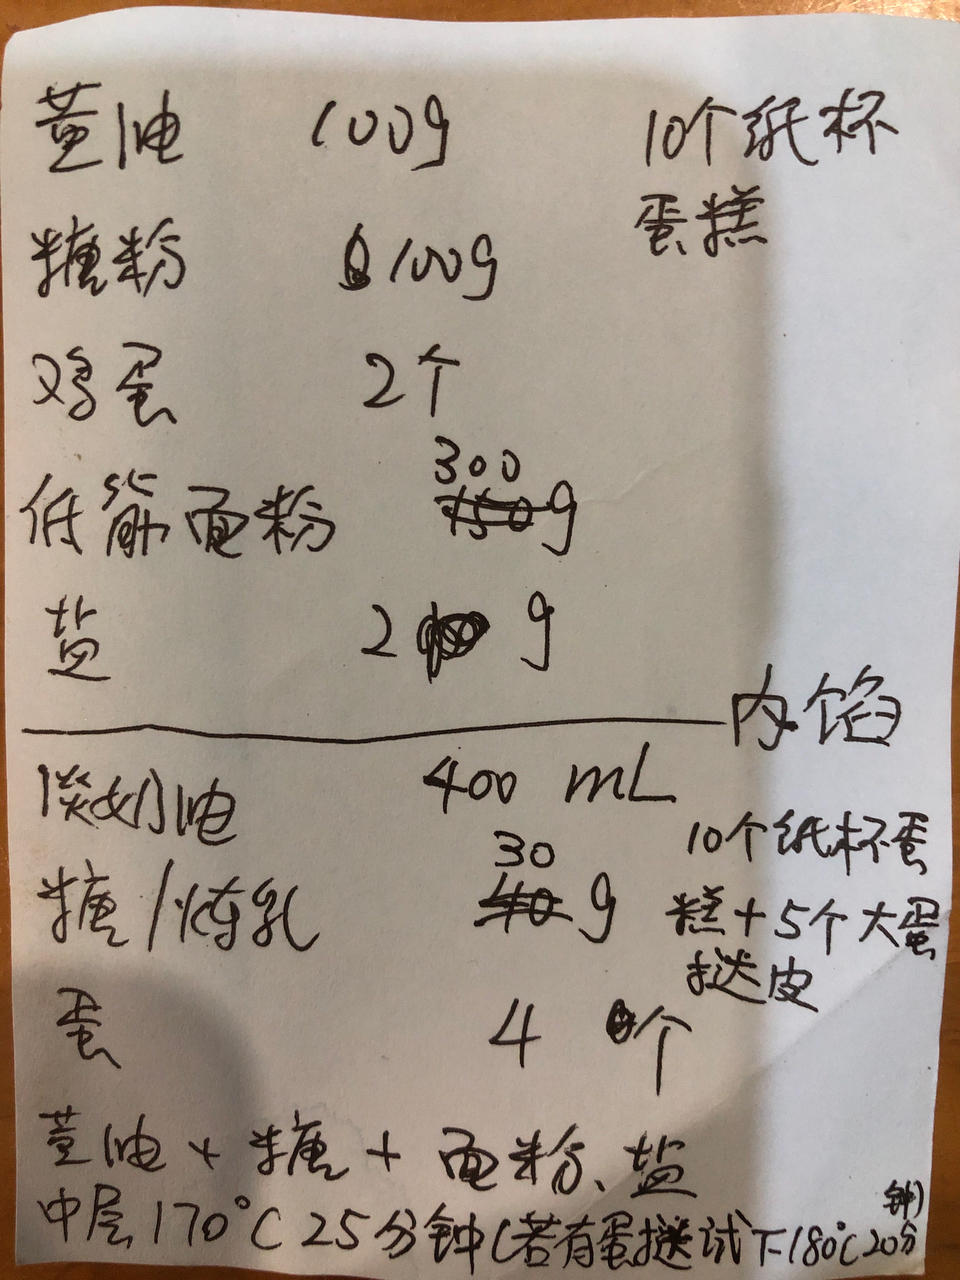 黄油 100g 10个纸杯
蛋糕
糖粉 100g
鸡蛋 2个
300
低筋面粉 150g
盐 2 g
内馅
淡奶油 400 mL
30
糖/炼乳 40 g
10个纸杯蛋
糕+5个大蛋
挞皮
蛋 4 个
黄油+糖+面粉、盐
中层170°C 25分钟(若有蛋挞试下180℃20分
钟)